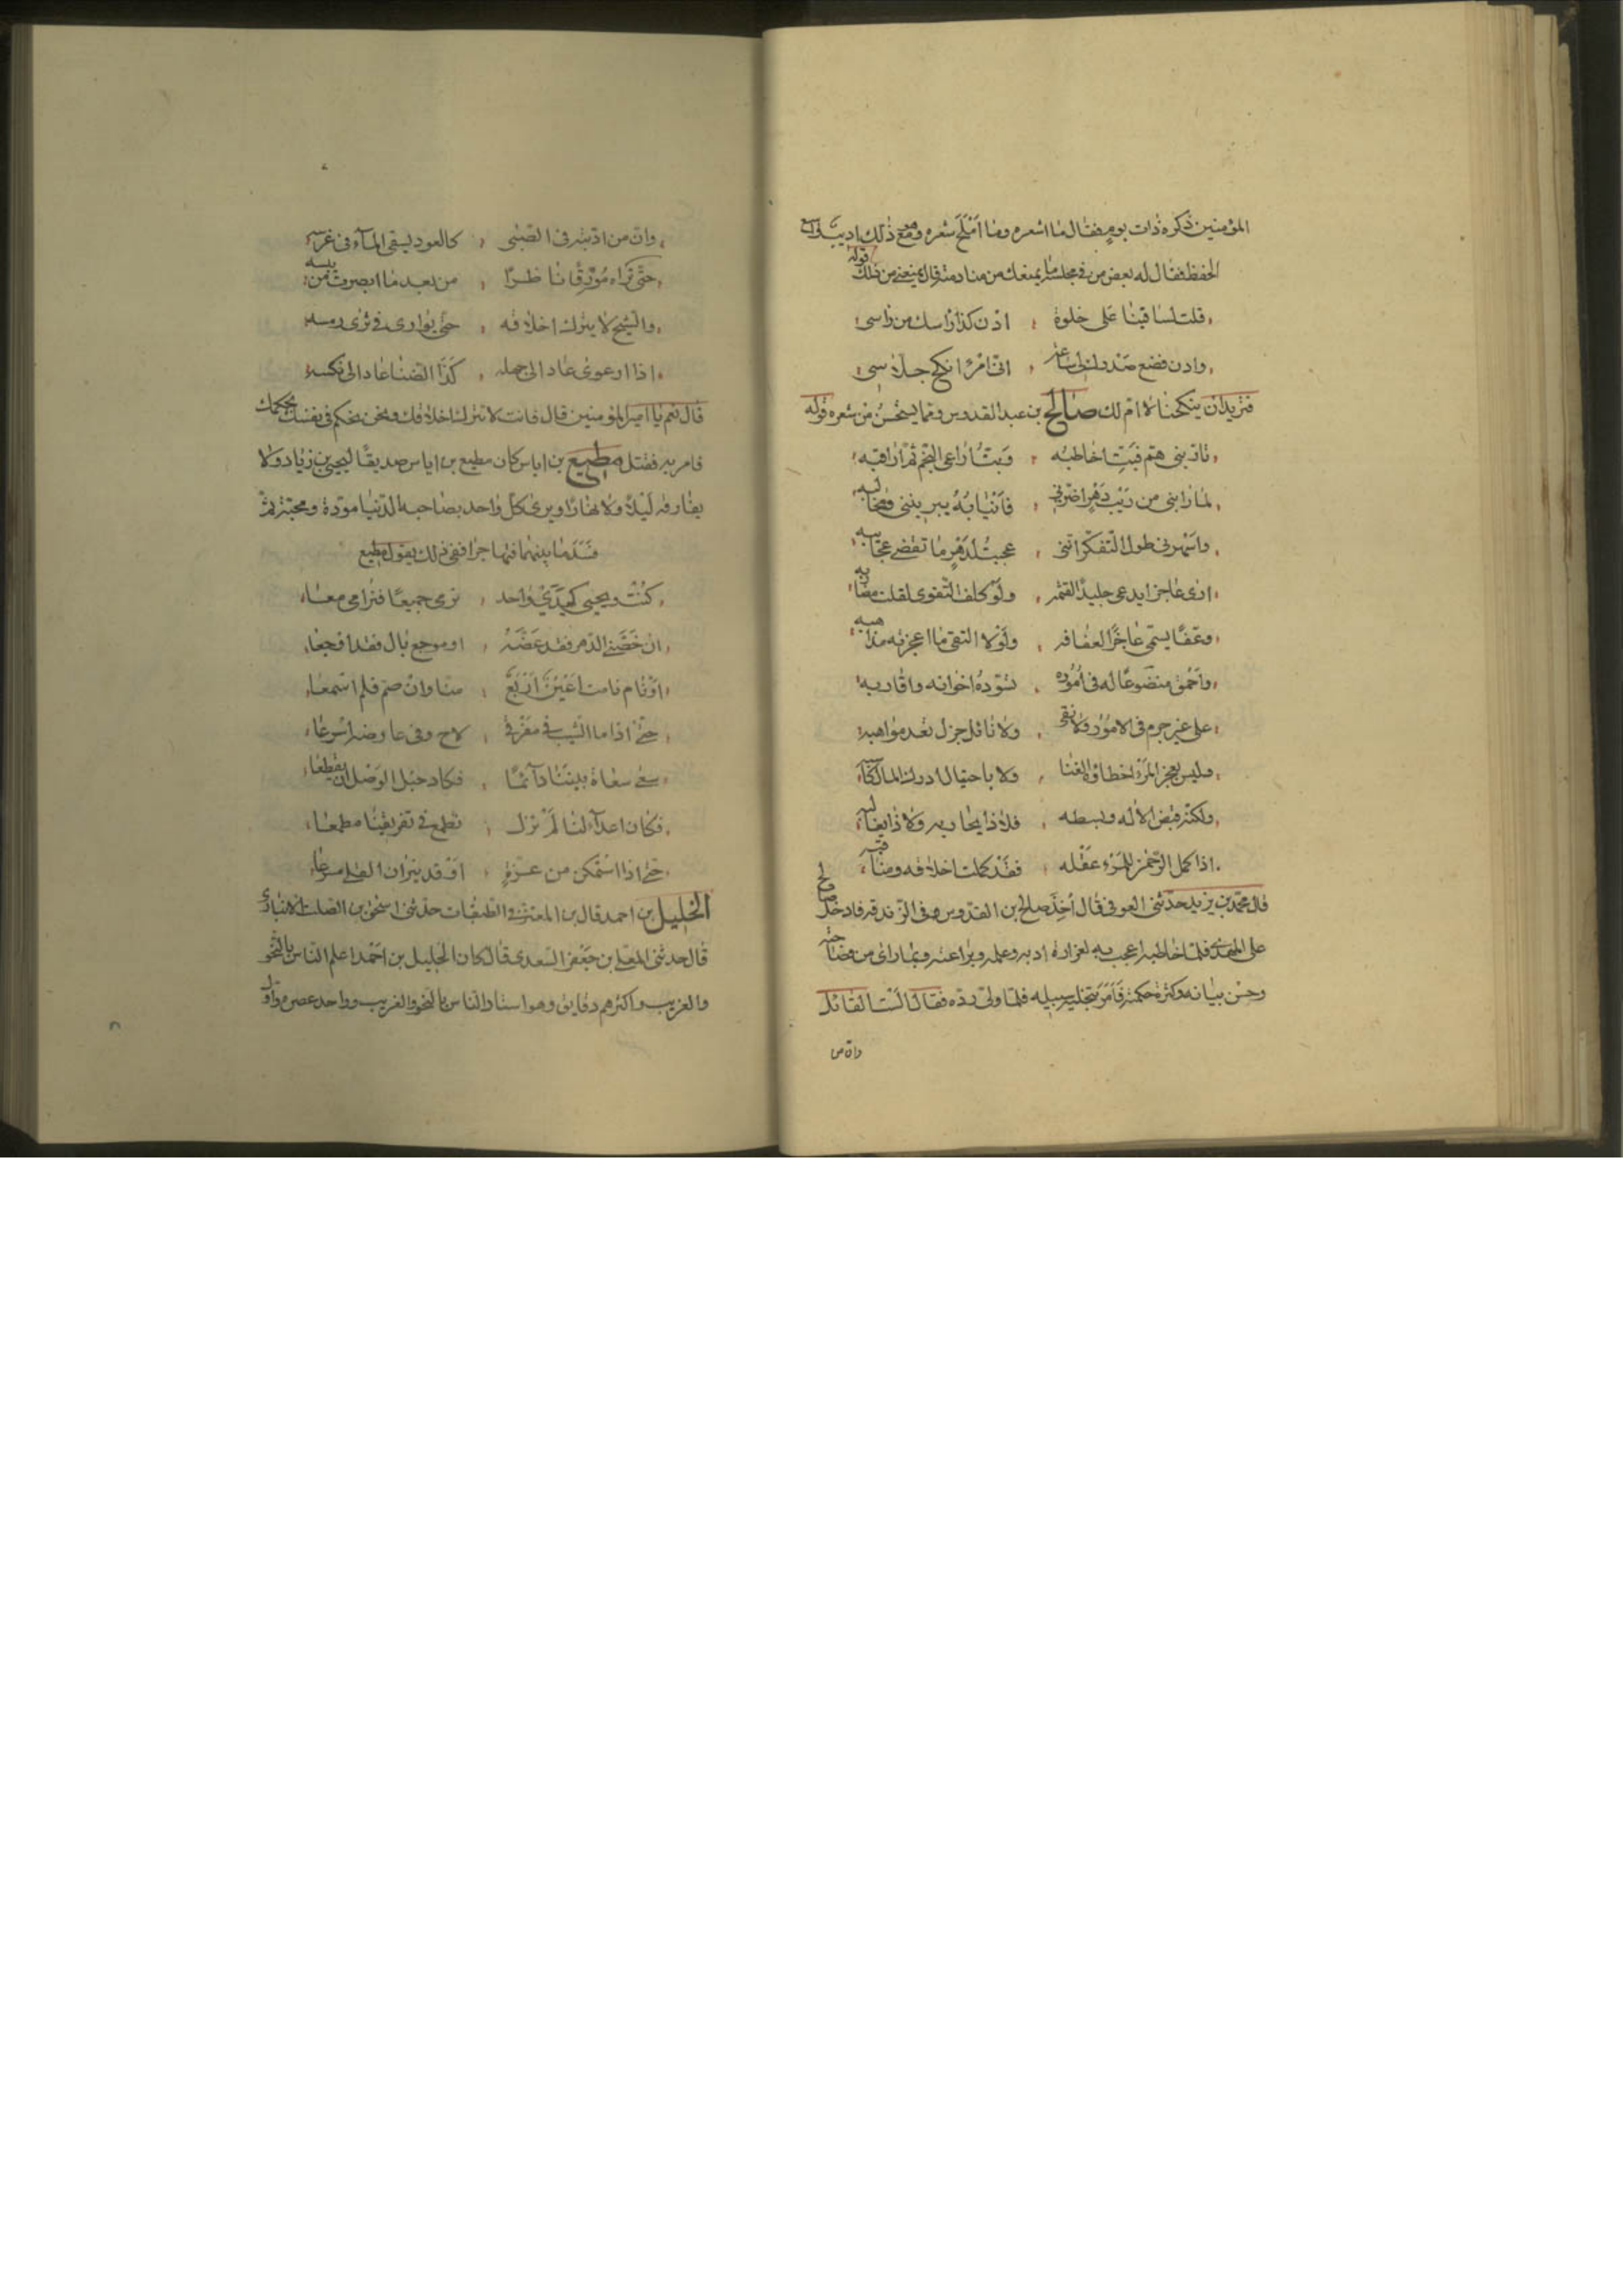 المؤمنين ذكره ذات يوم فقال ما اشعره وما املح شعره ومع ذلك اديب
الحفظ فقال له بعض من فى مجلسه ما يمنعك من منادمته قال يمنعنى من ذلك قوله
قلت لساقينا على خلوة ، ادن كذا راسك من راسى
وادن فضع صدرك لى ساعة ، انى امرؤ انكح جلاسى
فتريد ان ينكحنا لا ام لك صالح بن عبد القدوس ومما يستحسن من شعره قوله
تاوبنى هم فبت اخاطبه ، وبت اراعى النجم ثم اراقبه
لما رابنى من ريب دهر اضر بى ، فانيابه يبريننى ومخالبه
واسهرنى طول التفكر اننى ، عجبت لدهر ما تقضى عجايبه
ارى عاجزا يدعى جليدا لقسمه ، ولو كلف التقوى لفلت مضاربه
وعفا يسمى عاجزا لعفافه ، ولولا التقى ما اعجزته مذاهبه
واحمق مصنوعا له فى اموره ، تسوده اخوانه واقاربه
على غير حزم فى الامور ولا تقى ، ولا نائل جزل تعد مواهبه
وليس بعجز المرء اخطاؤه الغنا ، ولا باحتيال ادرك المال كاسبه
ولكنه قبض الاله وبسطه ، فلا ذا يجاريه ولا ذا يغالبه
اذا كمل الرحمن للمرء عقله ، فقد كملت اخلاقه ومناقبه
قال محمد بن يزيد حدثنى العوفى قال اخذ صالح بن القدوس فى الزندقه فادخل
على المهدى فلما خاطبه اعجب به لغزارة ادبه وعلمه وبراعته وبما راى من فصاحته
وحسن بيانه وكثرة حكمته فامر بتخلية سبيله فلما ولى رده فقال الست القائل
وان من
وان من ادبته فى الصبى ، كالعود يسقى الماء فى غرسه
حتى تراه مورقا ناضرا ، من بعد ما ابصرت من يبسه
والشيخ لا يترك اخلاقه ، حتى يوارى فى ثرى رمسه
اذا ارعوى عاد الى جهله ، كذا الضنا عاد الى نكسه
قال نعم يا امير المؤمنين قال فانت لا تترك اخلاقك ونحن نحكم فى نفسك بحكمك
فامر به فقتل مطيع بن اياس كان مطيع بن اياس صديقا ليحيى بن زياد ولا
يفارقه ليلا ولا نهارا ويرى كل واحد بصاحبه الدنيا مودة ومحبة ثم
فسد ما بينهما فتهاجرا ففى ذلك يقول مطيع
كنت ويحيى كيدى واحد ، نرمى جميعا فنرامى معا
ان عضنى الدهر فقد عضه ، او موجع بال فقد افجعا
او نام نامت اعين اربع ، منا وان صم فلم اسمعا
حتى اذا ما الشيب فى مفرقى ، لاح وفى عارضه اسرعا
سعى سعاة بيننا دآئما ، فكاد حبل الوصل ان يقطعا
فكان اعدآء لنا لم تزل ، تطمع فى تفريقنا مطمعا
حتى اذا استمكن من عثرة ، اوقد نيران القلى مسرعا
الخليل بن احمد قال بن المعتز فى الطبقات حدثنى اسحق بن الصلت الانبارى
قال حدثنى المعلى بن جعفر السعدى قال كان الخليل بن احمد اعلم الناس بالنحو
والغريب واكثرهم دقايق وهو استاد الناس بالنحو والغريب وواحد عصره واول